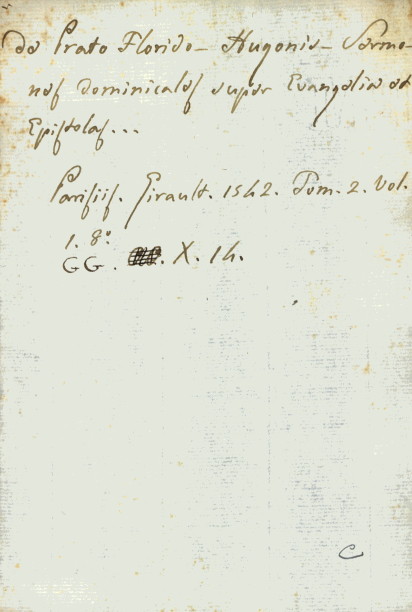 de Prato Florido – Hugonis – Sermo-
nes Dominicales super Evangelia et
Epistolas...
Parisiis. Girault. 1542. Tom. 2. Vol.
1. 8°
GG. X. 14.
C